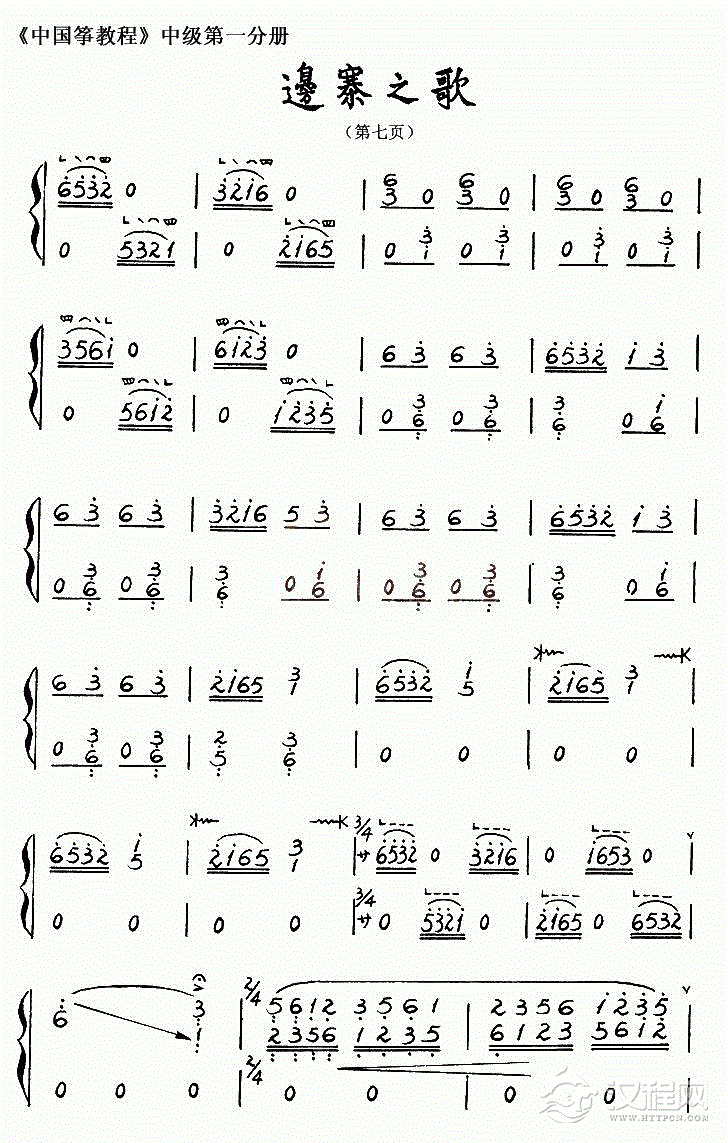 《中国筝教程》中级第一分册
邊寨之歌
（第七页）
6532 0 | 3216 0 | 6/3 0 6/3 0 | 6/3 0 6/3 0 |
0 5321 | 0 2165 | 0 3/1 0 3/1 | 0 3/1 0 3/1 |
3561 0 | 6123 0 | 6 3 6 3 | 6532 1 3 |
0 5612 | 0 1235 | 0 3/6 0 3/6 | 3/6 0 1/6 |
6 3 6 3 | 3216 5 3 | 6 3 6 3 | 6532 1 3 |
0 3/6 0 3/6 | 3/6 0 1/6 | 0 3/6 0 3/6 | 3/6 0 1/6 |
6 3 6 3 | 2165 3/1 | 6532 1/5 | 2165 3/1 |
0 3/6 0 3/6 | 2/5 3/6 | 0 0 | 0 0 |
6532 1/5 | 2165 3/1 | 3/4 サ 6532 0 3216 | 0 1653 0
0 0 | 0 0 | 3/4 サ 0 5321 0 | 2165 0 6532
6 3 1 | 2/4 5612 3561 | 2356 1235 |
2356 1235 | 6123 5612
0 0 0 0 | 2/4 0 0 | 0 0 |
汉程网
HTTPCN.COM